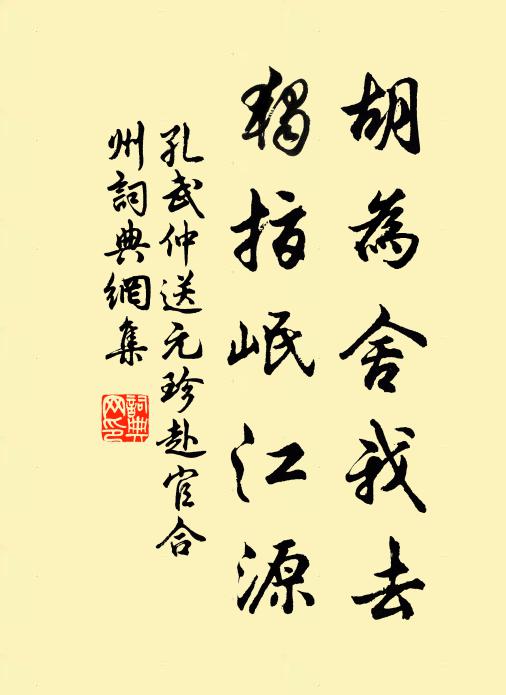 胡為舍我去
獨指岷江源
孔武仲送元珍赴官合
州詞典網集
詞典
网印